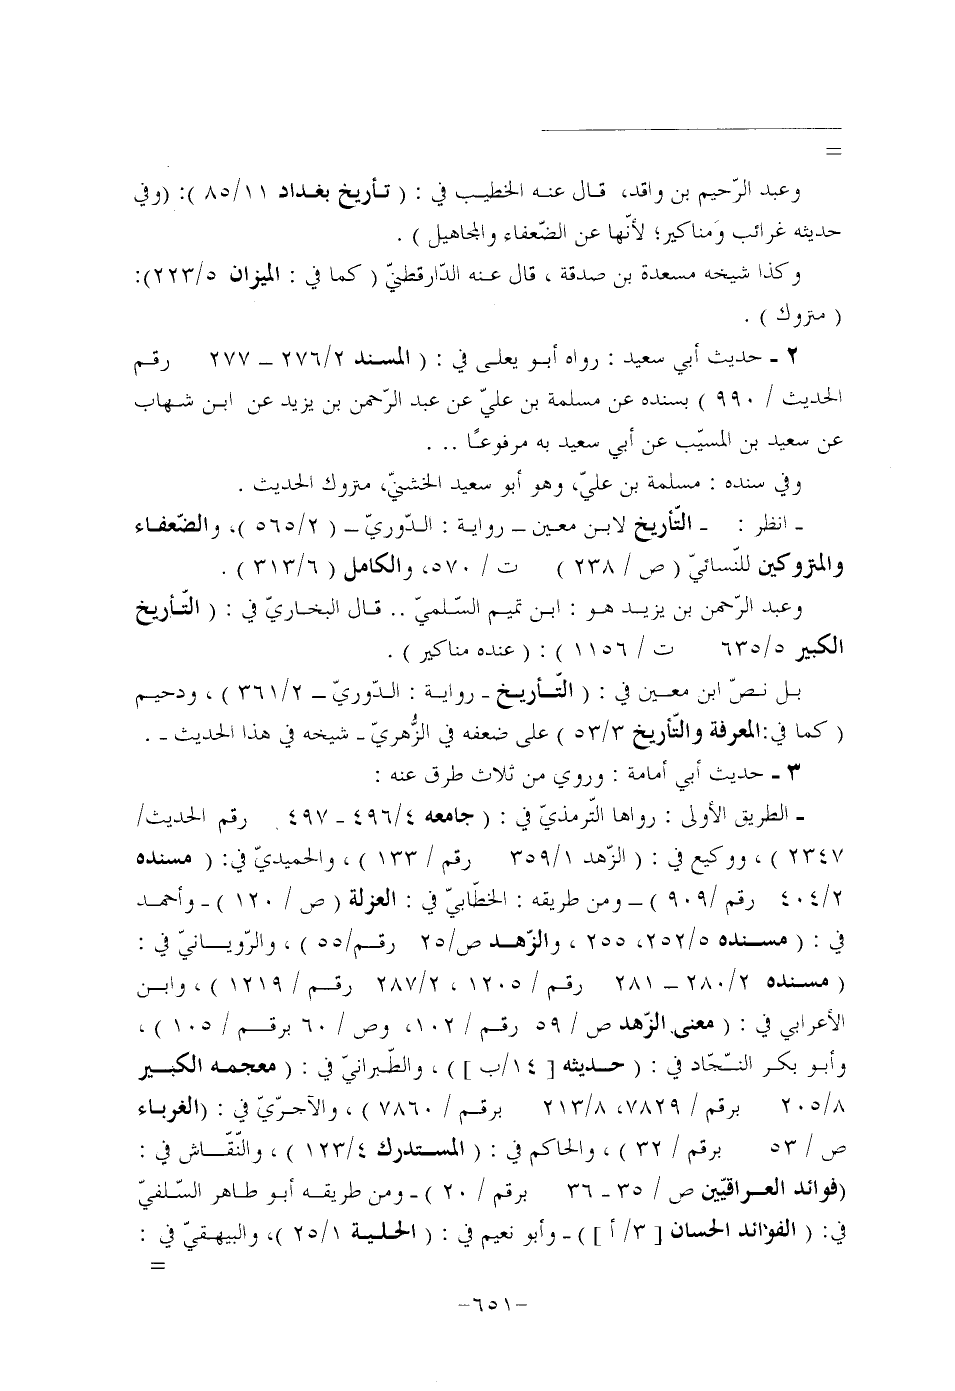 =
وعبد الرّحيم بن واقد، قال عنه الخطيب في : ( تأريخ بغداد ٨٥/١١ ): (وفي
حديثه غرائب ومناكير؛ لأنّها عن الضّعفاء والمجاهيل ) .
وكذا شيخه مسعدة بن صدقة ، قال عنه الدّارقطنيّ ( كما في : الميزان ٢٢٣/٥):
( متروك ) .
٢ ـ حديث أبي سعيد : رواه أبو يعلى في : ( المسند ٢٧٦/٢ – ٢٧٧ رقم
الحديث / ٩٩٠ ) بسنده عن مسلمة بن عليّ عن عبد الرّحمن بن يزيد عن ابن شهاب
عن سعيد بن المسيّب عن أبي سعيد به مرفوعًا .. .
وفي سنده : مسلمة بن عليّ، وهو أبو سعيد الخشنيّ، متروك الحديث .
ـ انظر : ـ التّأريخ لابن معين – رواية : الدّوريّ – ( ٥٦٥/٢ )، والضّعفاء
والمتروكين للنّسائيّ ( ص / ٢٣٨ ) ت / ٥٧٠، والكامل ( ٣١٣/٦ ) .
وعبد الرّحمن بن يزيد هو : ابن تميم السّلميّ .. قال البخاريّ في : ( التّأريخ
الكبير ٦٣٥/٥ ت / ١١٥٦ ) : ( عنده مناكير ) .
بل نصّ ابن معين في : ( التّأريخ ـ رواية : الدّوريّ – ٣٦١/٢ ) ، ودحيم
( كما في:المعرفة والتّأريخ ٥٣/٣ ) على ضعفه في الزُّهريّ ـ شيخه في هذا الحديث ـ .
٣ ـ حديث أبي أمامة : وروي من ثلاث طرق عنه :
ـ الطريق الأولى : رواها التّرمذيّ في : ( جامعه ٤٩٦/٤ ـ ٤٩٧ رقم الحديث/
٢٣٤٧ ) ، ووكيع في : ( الزّهد ٣٥٩/١ رقم / ١٣٣ ) ، والحميديّ في: ( مسنده
٤٠٤/٢ رقم /٩٠٩ ) – ومن طريقه : الخطّابيّ في : العزلة ( ص / ١٢٠ ) ـ وأحمد
في : ( مسنده ٢٥٢/٥، ٢٥٥ ، والزّهد ص/٢٥ رقم/٥٥ ) ، والرّويانيّ في :
( مسنده ٢٨٠/٢ – ٢٨١ رقم / ١٢٠٥ ، ٢٨٧/٢ رقم / ١٢١٩ ) ، وابن
الأعرابي في : ( معنى الزّهد ص / ٥٩ رقم / ١٠٢، وص / ٦٠ برقم / ١٠٥ ) ،
وأبو بكر النّجّاد في : ( حديثه [ ١٤/ب ] ) ، والطّبرانيّ في : ( معجمه الكبير
٢٠٥/٨ برقم / ٧٨٢٩، ٢١٣/٨ برقم / ٧٨٦٠ ) ، والآجرّيّ في : (الغرباء
ص / ٥٣ برقم / ٣٢ ) ، والحاكم في : ( المستدرك ١٢٣/٤ ) ، والنّقّاش في :
(فوائد العراقيّين ص / ٣٥ ـ ٣٦ برقم / ٢٠ ) ـ ومن طريقه أبو طاهر السّلفيّ
في: ( الفوائد الحسان [ ٣/ أ ] ) ـ وأبو نعيم في : ( الحلية ٢٥/١ )، والبيهقيّ في :
=
-٦٥١-